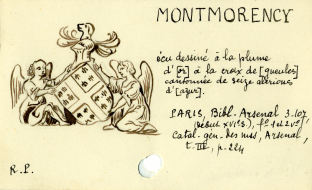 MONTMORENCY
écu dessiné à la plume
d'[or] à la croix de [gueules]
cantonnée de seize alérions
d'[azur].
PARIS, Bibl. Arsenal 3.107
(début XVIe s.), f° 1 et 2 v°/
Catal. gén. des mss, Arsenal,
t. III, p. 224
R.P.